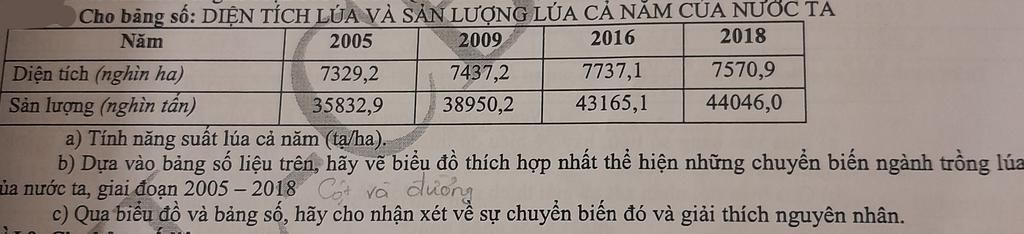 Cho bảng số: DIỆN TÍCH LÚA VÀ SẢN LƯỢNG LÚA CẢ NĂM CỦA NƯỚC TA
Năm 2005 2009 2016 2018
Diện tích (nghìn ha) 7329,2 7437,2 7737,1 7570,9
Sản lượng (nghìn tấn) 35832,9 38950,2 43165,1 44046,0
a) Tính năng suất lúa cả năm (tạ/ha).
b) Dựa vào bảng số liệu trên, hãy vẽ biểu đồ thích hợp nhất thể hiện những chuyển biến ngành trồng lúa
ủa nước ta, giai đoạn 2005 – 2018 Cột và đường
c) Qua biểu đồ và bảng số, hãy cho nhận xét về sự chuyển biến đó và giải thích nguyên nhân.